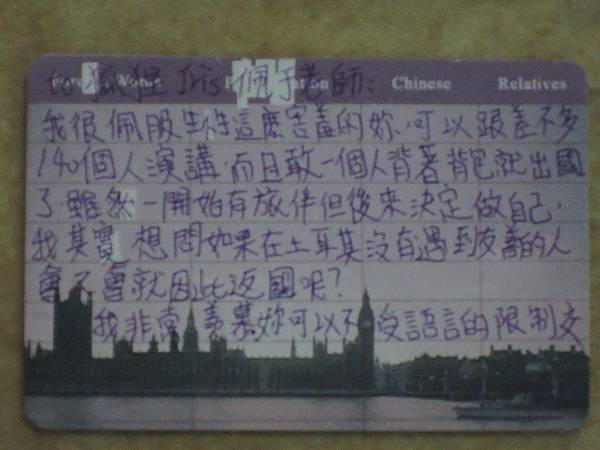 to 狐狸 Iris 佩于老師:
Words Chinese Relatives
我很佩服生性這麼害羞的妳,可以跟差不多
140個人演講.而且敢一個人背著背包就出國
了.雖然一開始有旅伴但後來決定做自己.
我其實想問如果在土耳其沒有遇到友善的人
會不會就因此返國呢?
我非常羨慕妳可以不受語言的限制交